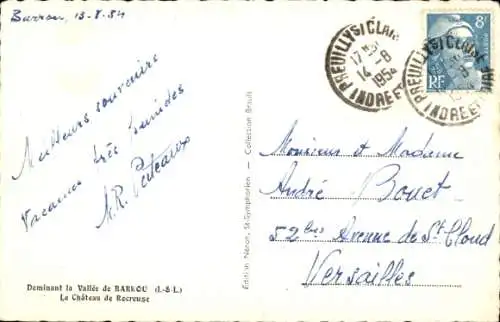 Barrou, 13-8-54
Meilleurs souvenirs
Vacances très humides
Dominant la Vallée de BARROU (I.-&-L.)
Le Château de Rocreuse
Édition Nénon, St-Symphorien - Collection Brault
PREUILLY S/ CLAISE
17 H
14-8
1954
INDRE ET
8F
RF
Monsieur et Madame
André Bouet
52 bis Avenue de St Cloud
Versailles